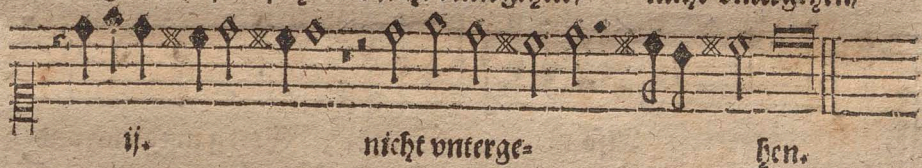 ij. nicht vnterge= hen.